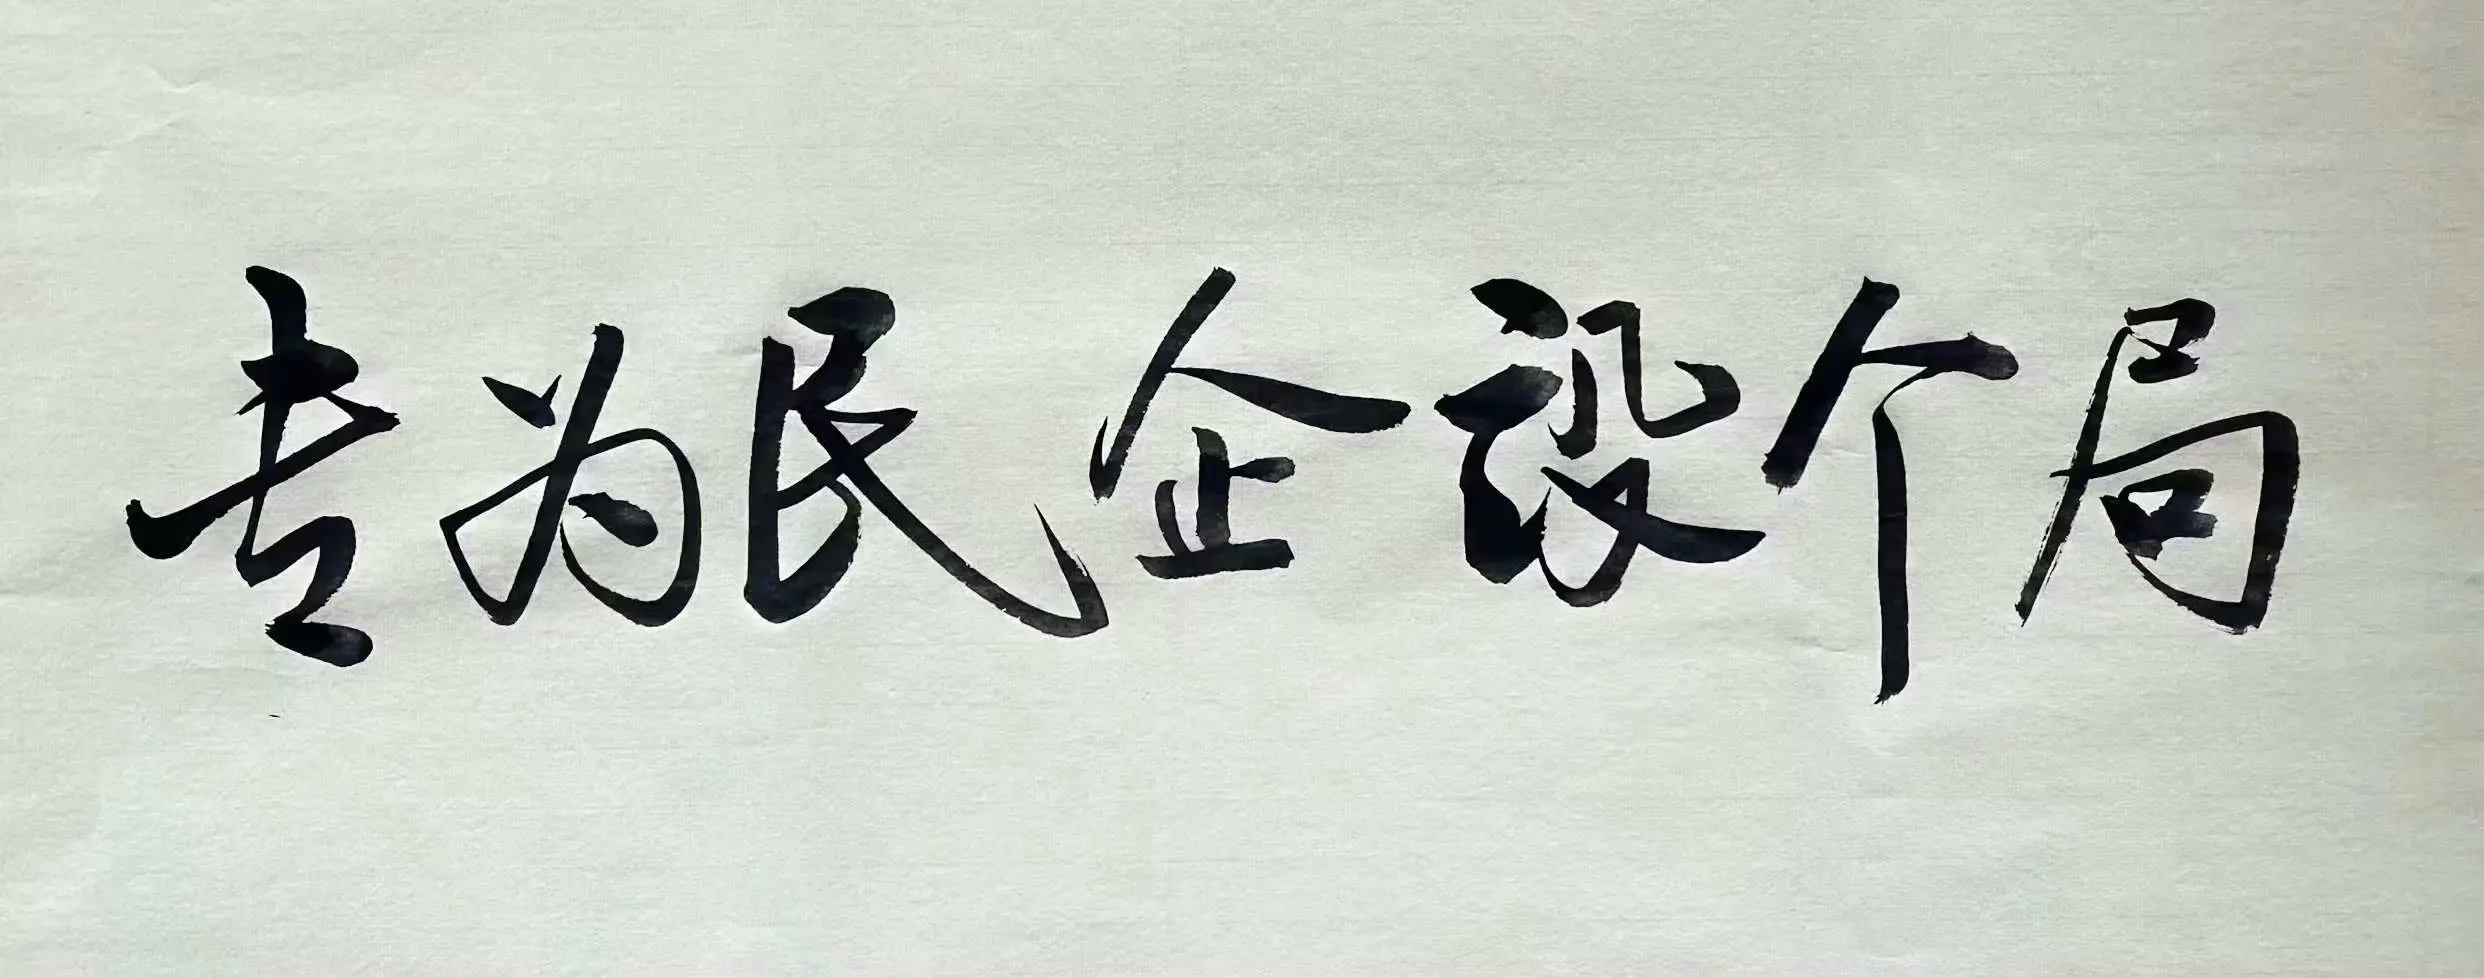 专为民企设个局